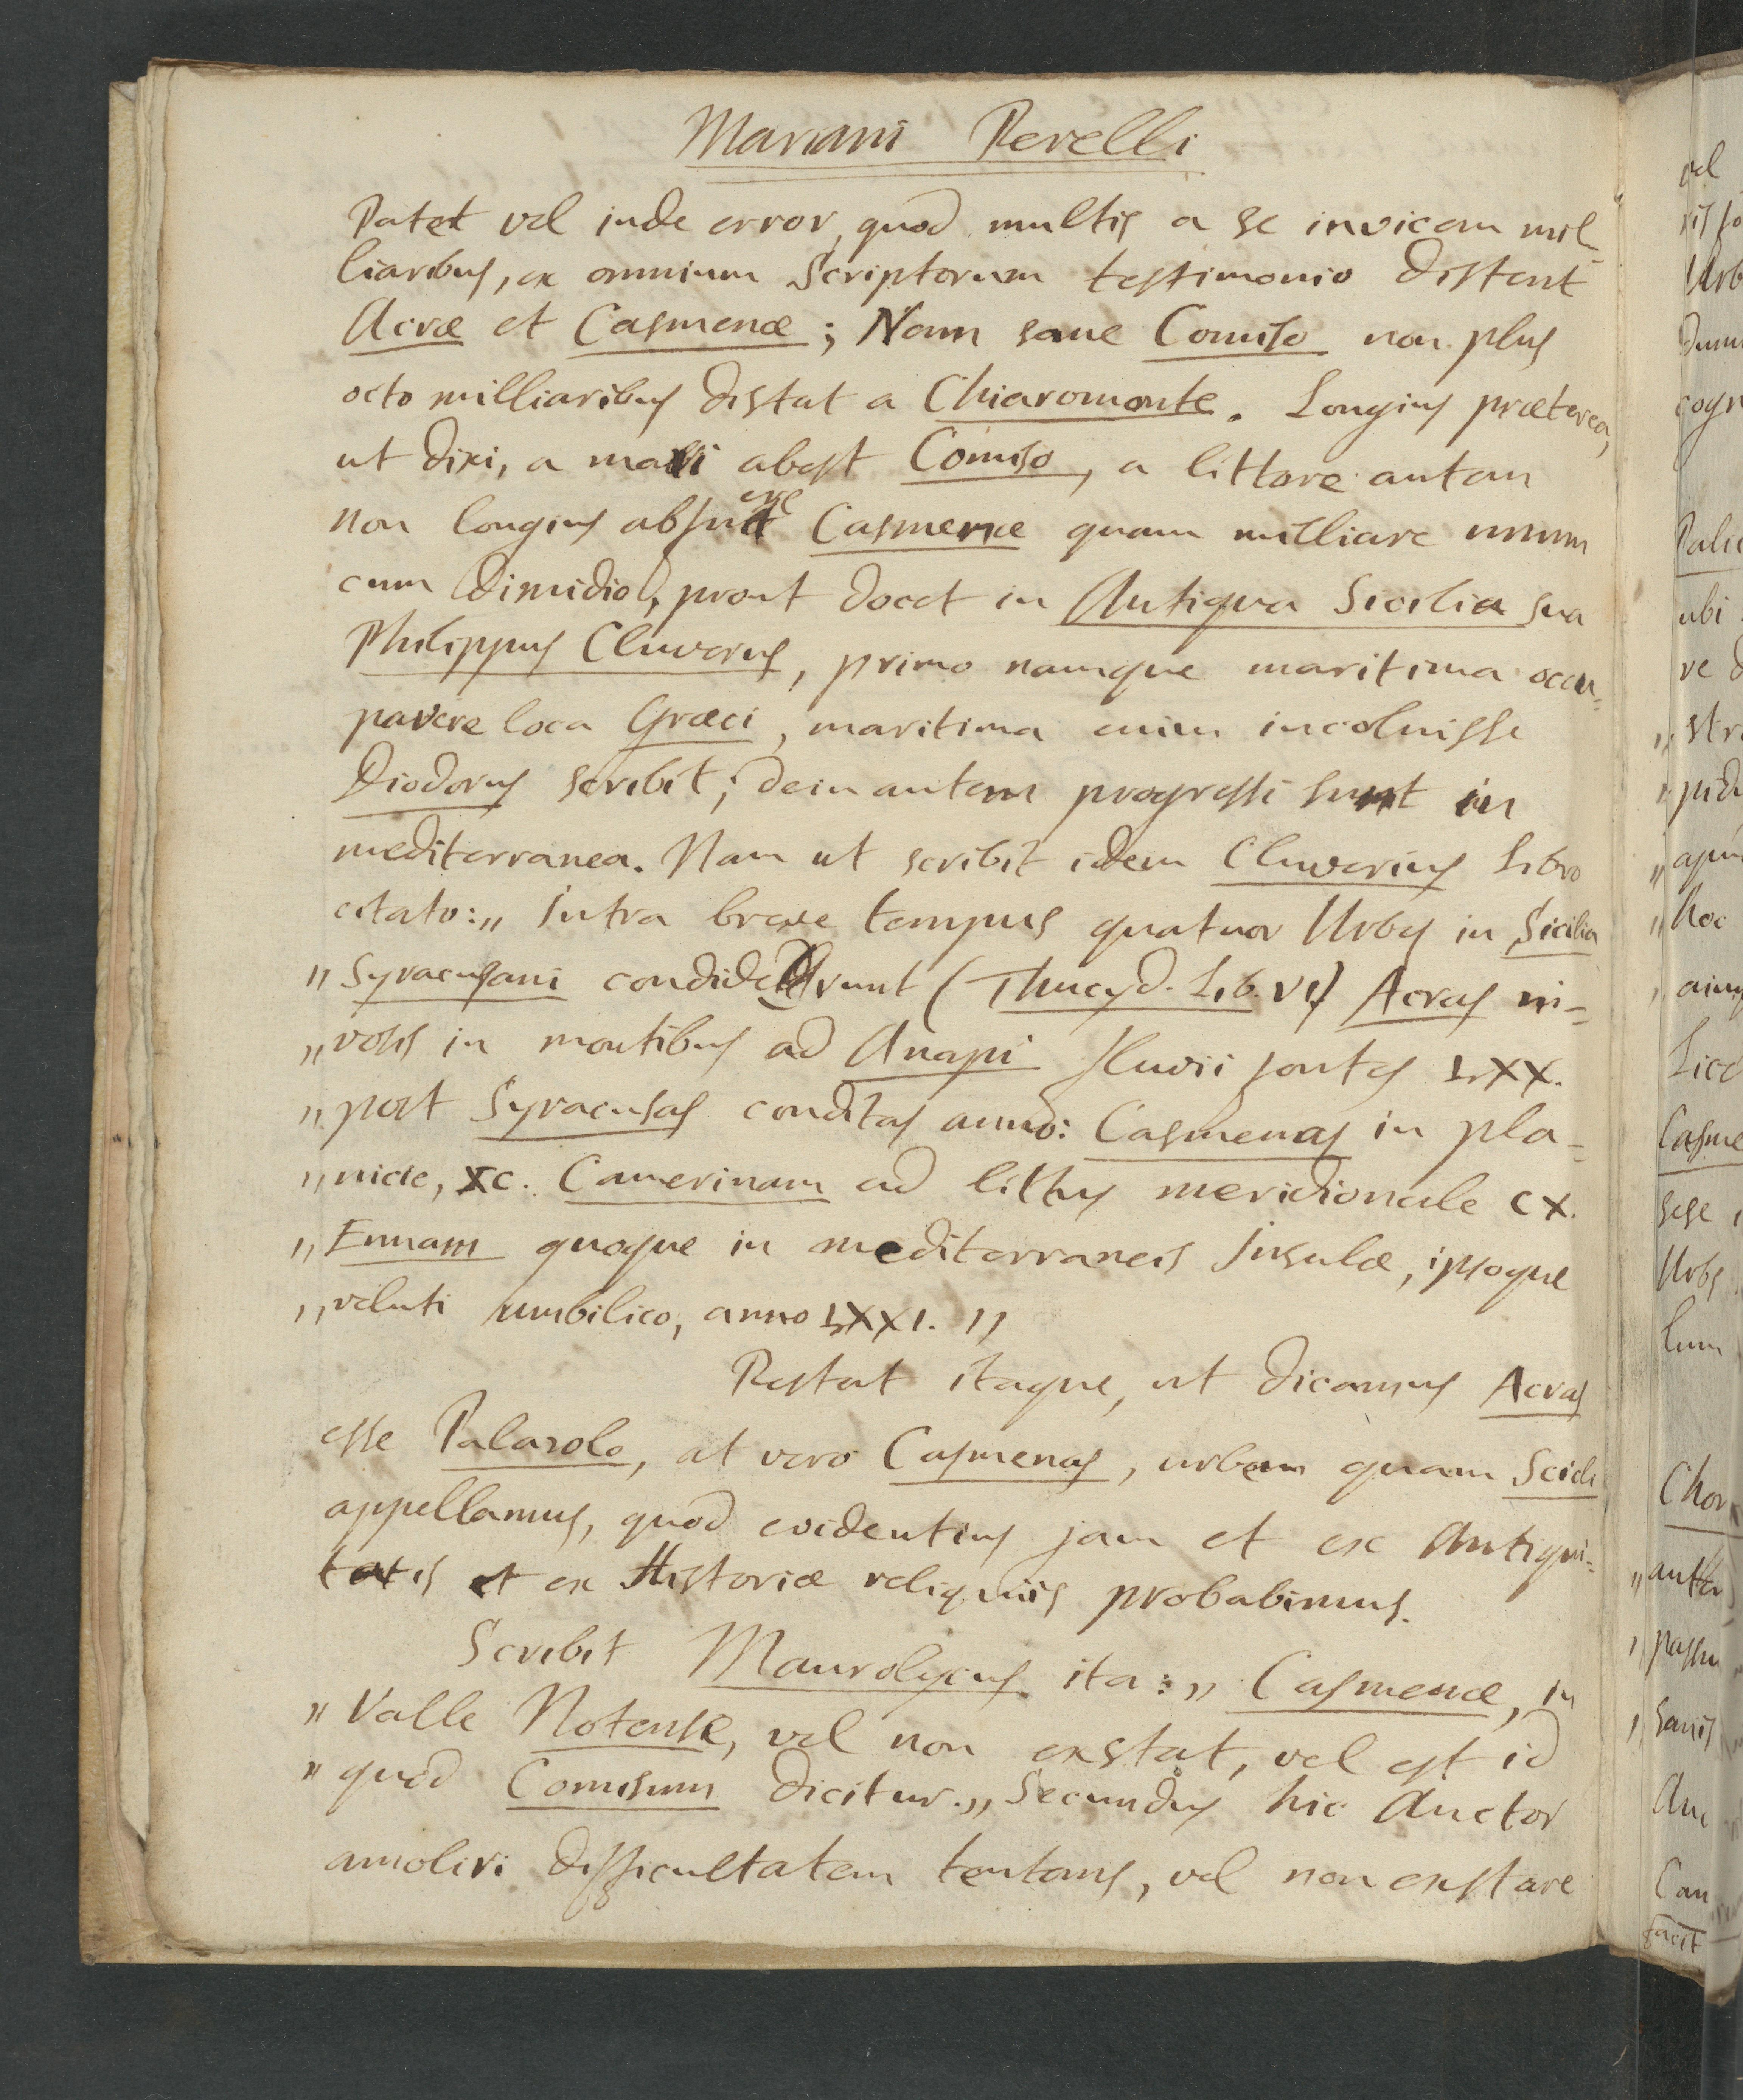 Mariani Perelli
Patet vel inde error, quod multis a se invicem mil-
liaribus, ex omnium Scriptorum testimonio distent
Acræ et Casmenæ; Nam sane Comiso non plus
octo milliaribus distat a Chiaromonte. Longius præterea,
ut dixi, a mari abest Comiso, a littore autem
non longius abfuere Casmenæ quam milliare unum
cum dimidio, prout docet in Antiqua Sicilia sua
Philippus Cluverus, primo namque maritima occu-
pavere loca Græci, maritima enim incoluisse
Diodorus scribit; dein autem progressi sunt in
mediterranea. Nam ut scribit idem Cluverius Libro
citato: „ Intra breve tempus quatuor Urbes in Sicilia
„ Syracusani condiderunt (Thucyd. Lib. VI) Acras ni-
„ vosis in montibus ad Anapi fluvii fontes LXX.
„ post Syracusas conditas anno: Casmenas in pla-
„ nicie, XC. Camerinam ad littus meridionale CX.
„ Ennam quoque in mediterraneis Insulæ, ipsoque
„ veluti umbilico, anno LXXI. „
Restat itaque, ut dicamus Acras
esse Palazolo, at vero Casmenas, urbem quam Scicli
appellamus, quod evidentius jam et ex Antiqui-
tatis et ex Historiæ reliquiis probabimus.
Scribit Maurolycus ita: „ Casmenæ, in
„ Valle Notense, vel non exstat, vel est id
„ quod Comisum dicitur. „ Secundus hic Auctor
amoliri difficultatem tentans, vel non exstare